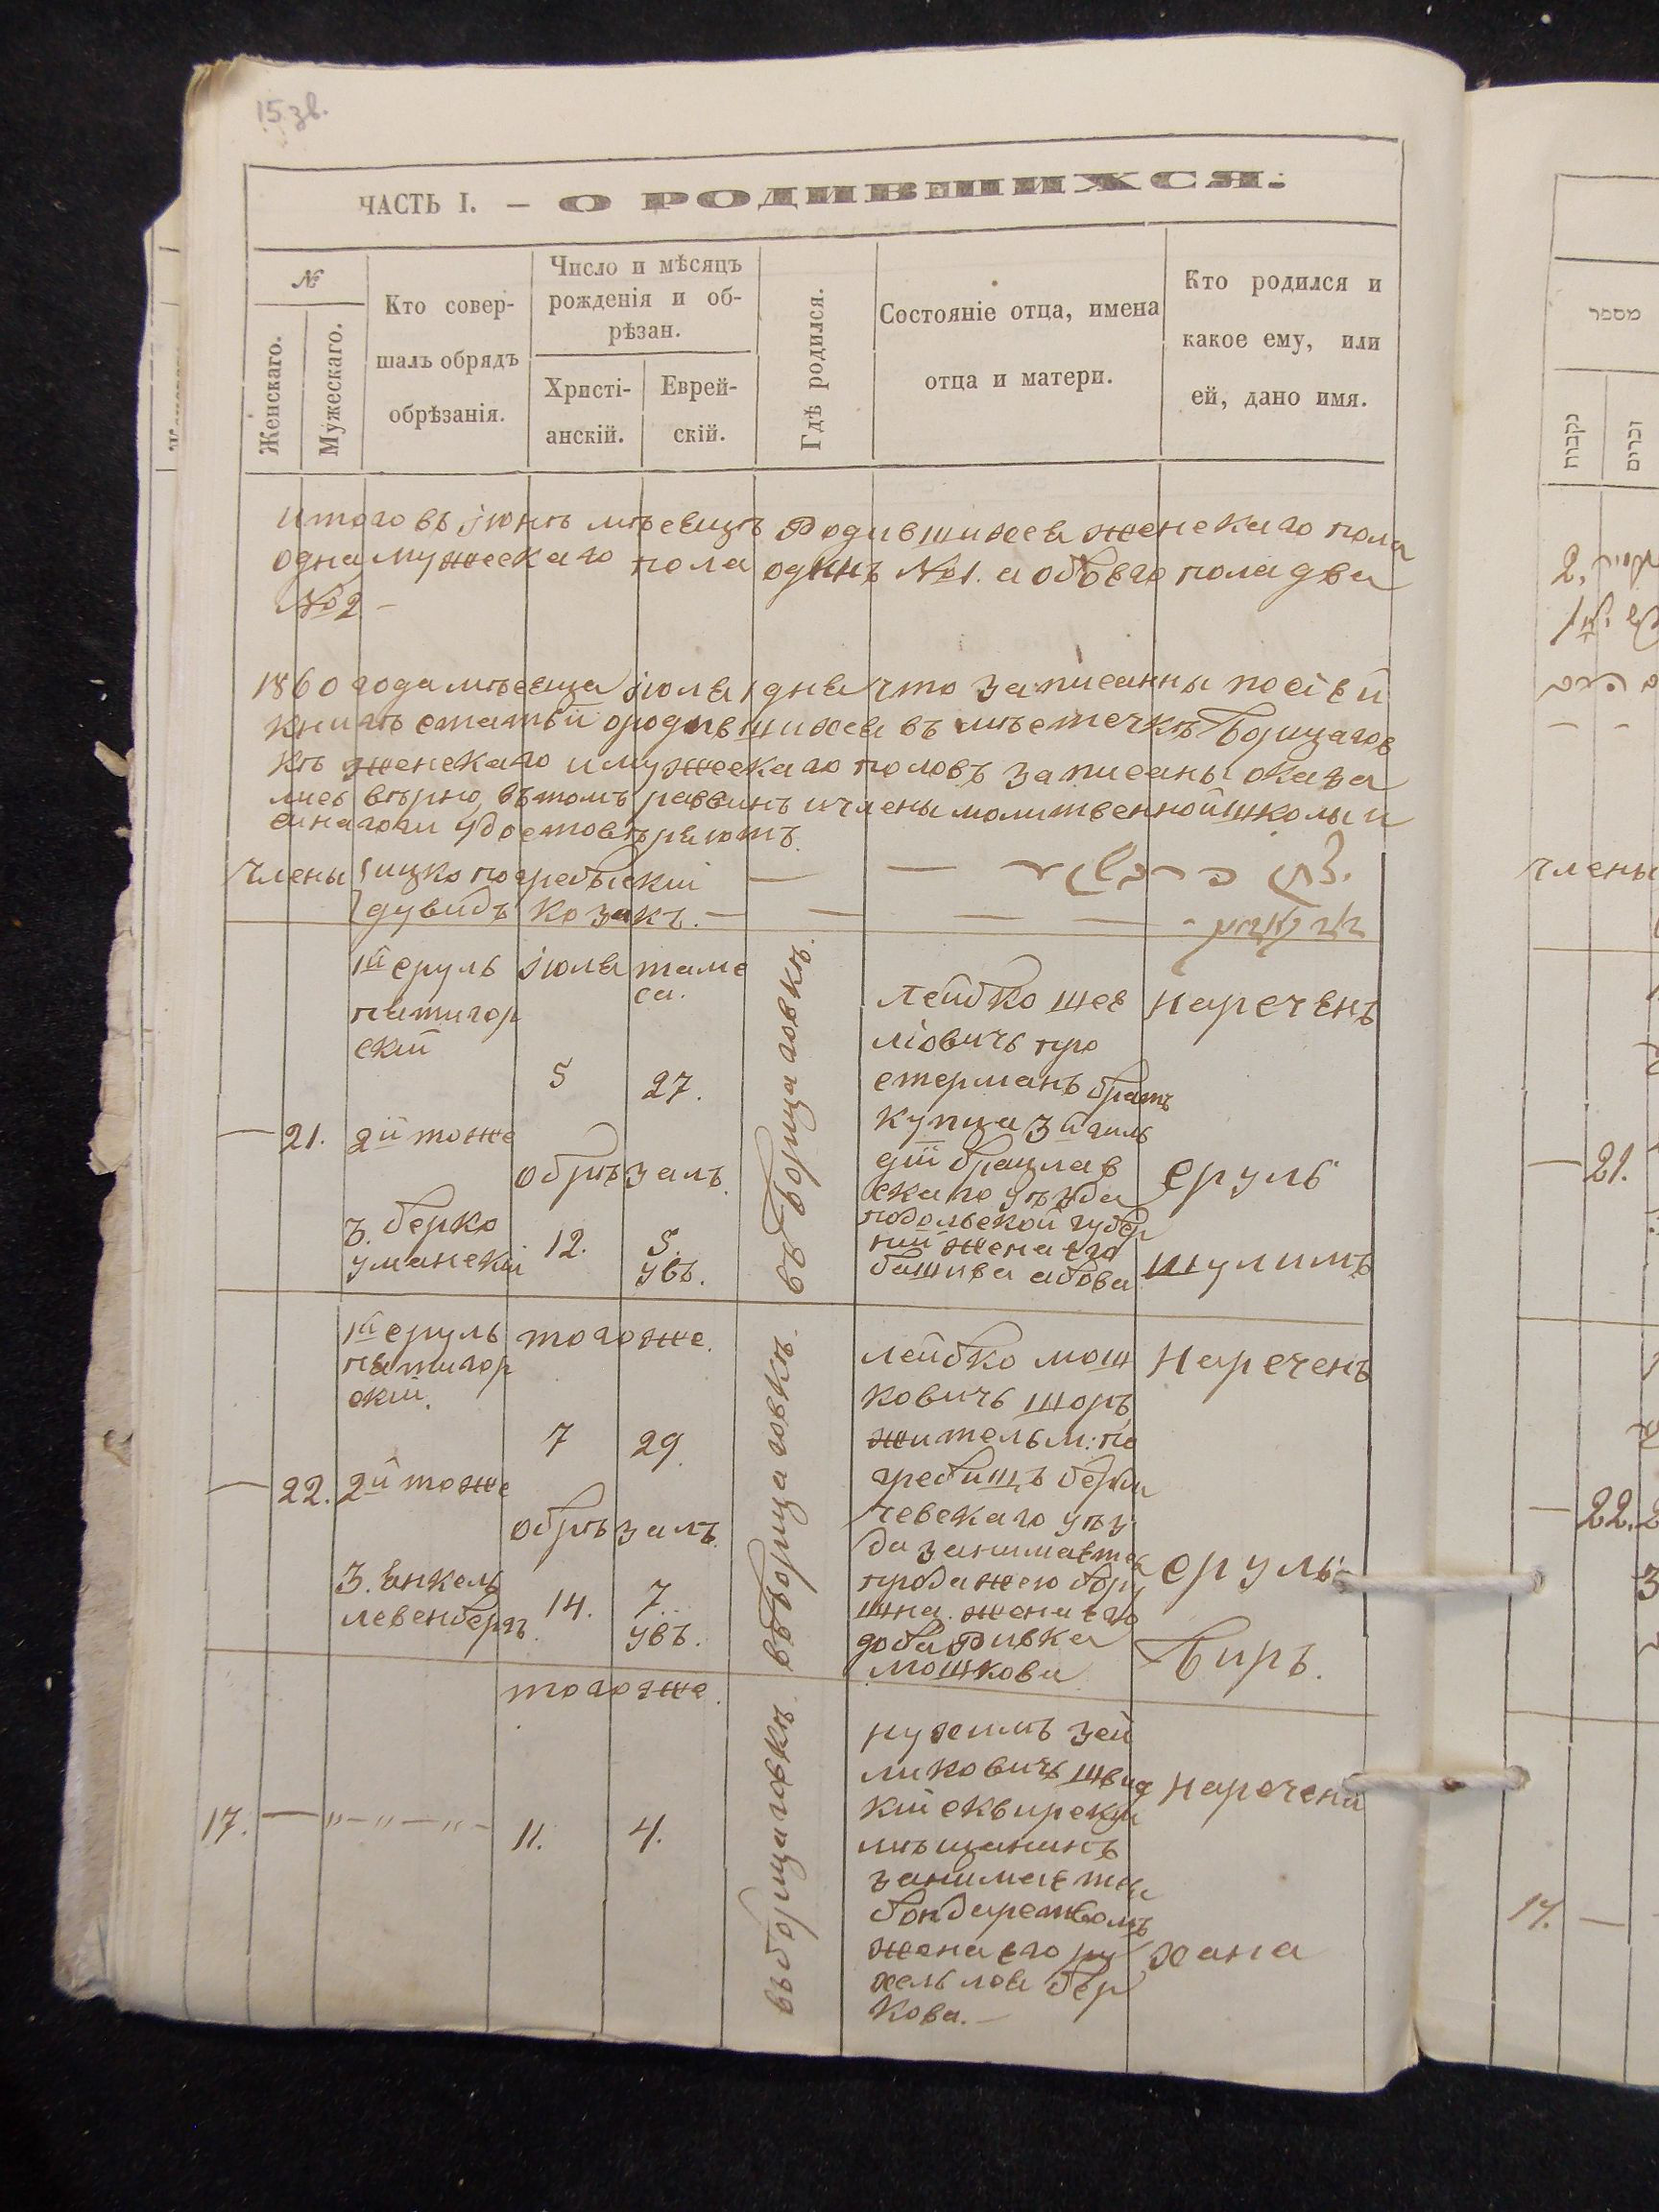 15 зв.
ЧАСТЬ I. — О РОДИВШИХСЯ.
№
Женскаго.
Мужескаго.
Кто совер-
шалъ обрядъ
обрѣзанія.
Число и мѣсяцъ
рожденія и об-
рѣзан.
Христі-
анскій.
Еврей-
скій.
Гдѣ родился.
Состояніе отца, имена
отца и матери.
Кто родился и
какое ему, или
ей, дано имя.
итого въ іюнѣ мѣсецѣ Родившихсе женскаго пола
одна мужескаго пола одинъ №1. а обоего пола два
№2 —
1860 года мѣсеца іюля 1 дня что записанны посіей
книгѣ статьи ородившихсе въ мѣстечкѣ Борщагов
кѣ женскаго имужескаго половъ записаны оказа
лись вѣрно, втомъ раввинъ ичлены молитвенной школы и
синагоги удостовѣряютъ.
Члены ицко погребыскій
дувидъ козакъ. —
— 21.
1й сруль
пятигор
скій
2й тоже
3. берко
уманскій
іюля
5
обрѣзалъ
12.
тамо
са.
27.
5.
увъ.
въ борщаговкѣ.
лейбко шее
ліовичъ про
стерманъ братъ
купца 3й гиль
діи брацлав
скаго уѣзда
подольской губер
ніи жена его
башива абова
нареченъ
сруль
шулимъ
— 22.
1й сруль
пятигор
скій.
2й тоже
3. янкель
левенбергъ.
тогоже.
7
29.
обрѣзалъ.
14.
7.
увъ.
въ борщаговкѣ.
лейбко мош
ковичъ шоръ
житель м: по
гребищъ берди
чевскаго уѣз
да занимается
продажею бору
шна. жена его
доба Ривка
мошкова
Нареченъ
сруль
Биръ.
17. —
тогоже.
11.
4.
въ борщаговкѣ.
нухимъ зей
ликовичъ швид
кій сквирскій
мѣщанинъ
занимается
бондарствомъ
жена его ру
хель лея бер
кова. —
наречена
хана
מספר
נקבות
זכרים
члены
— 21.
— 22.
17. —